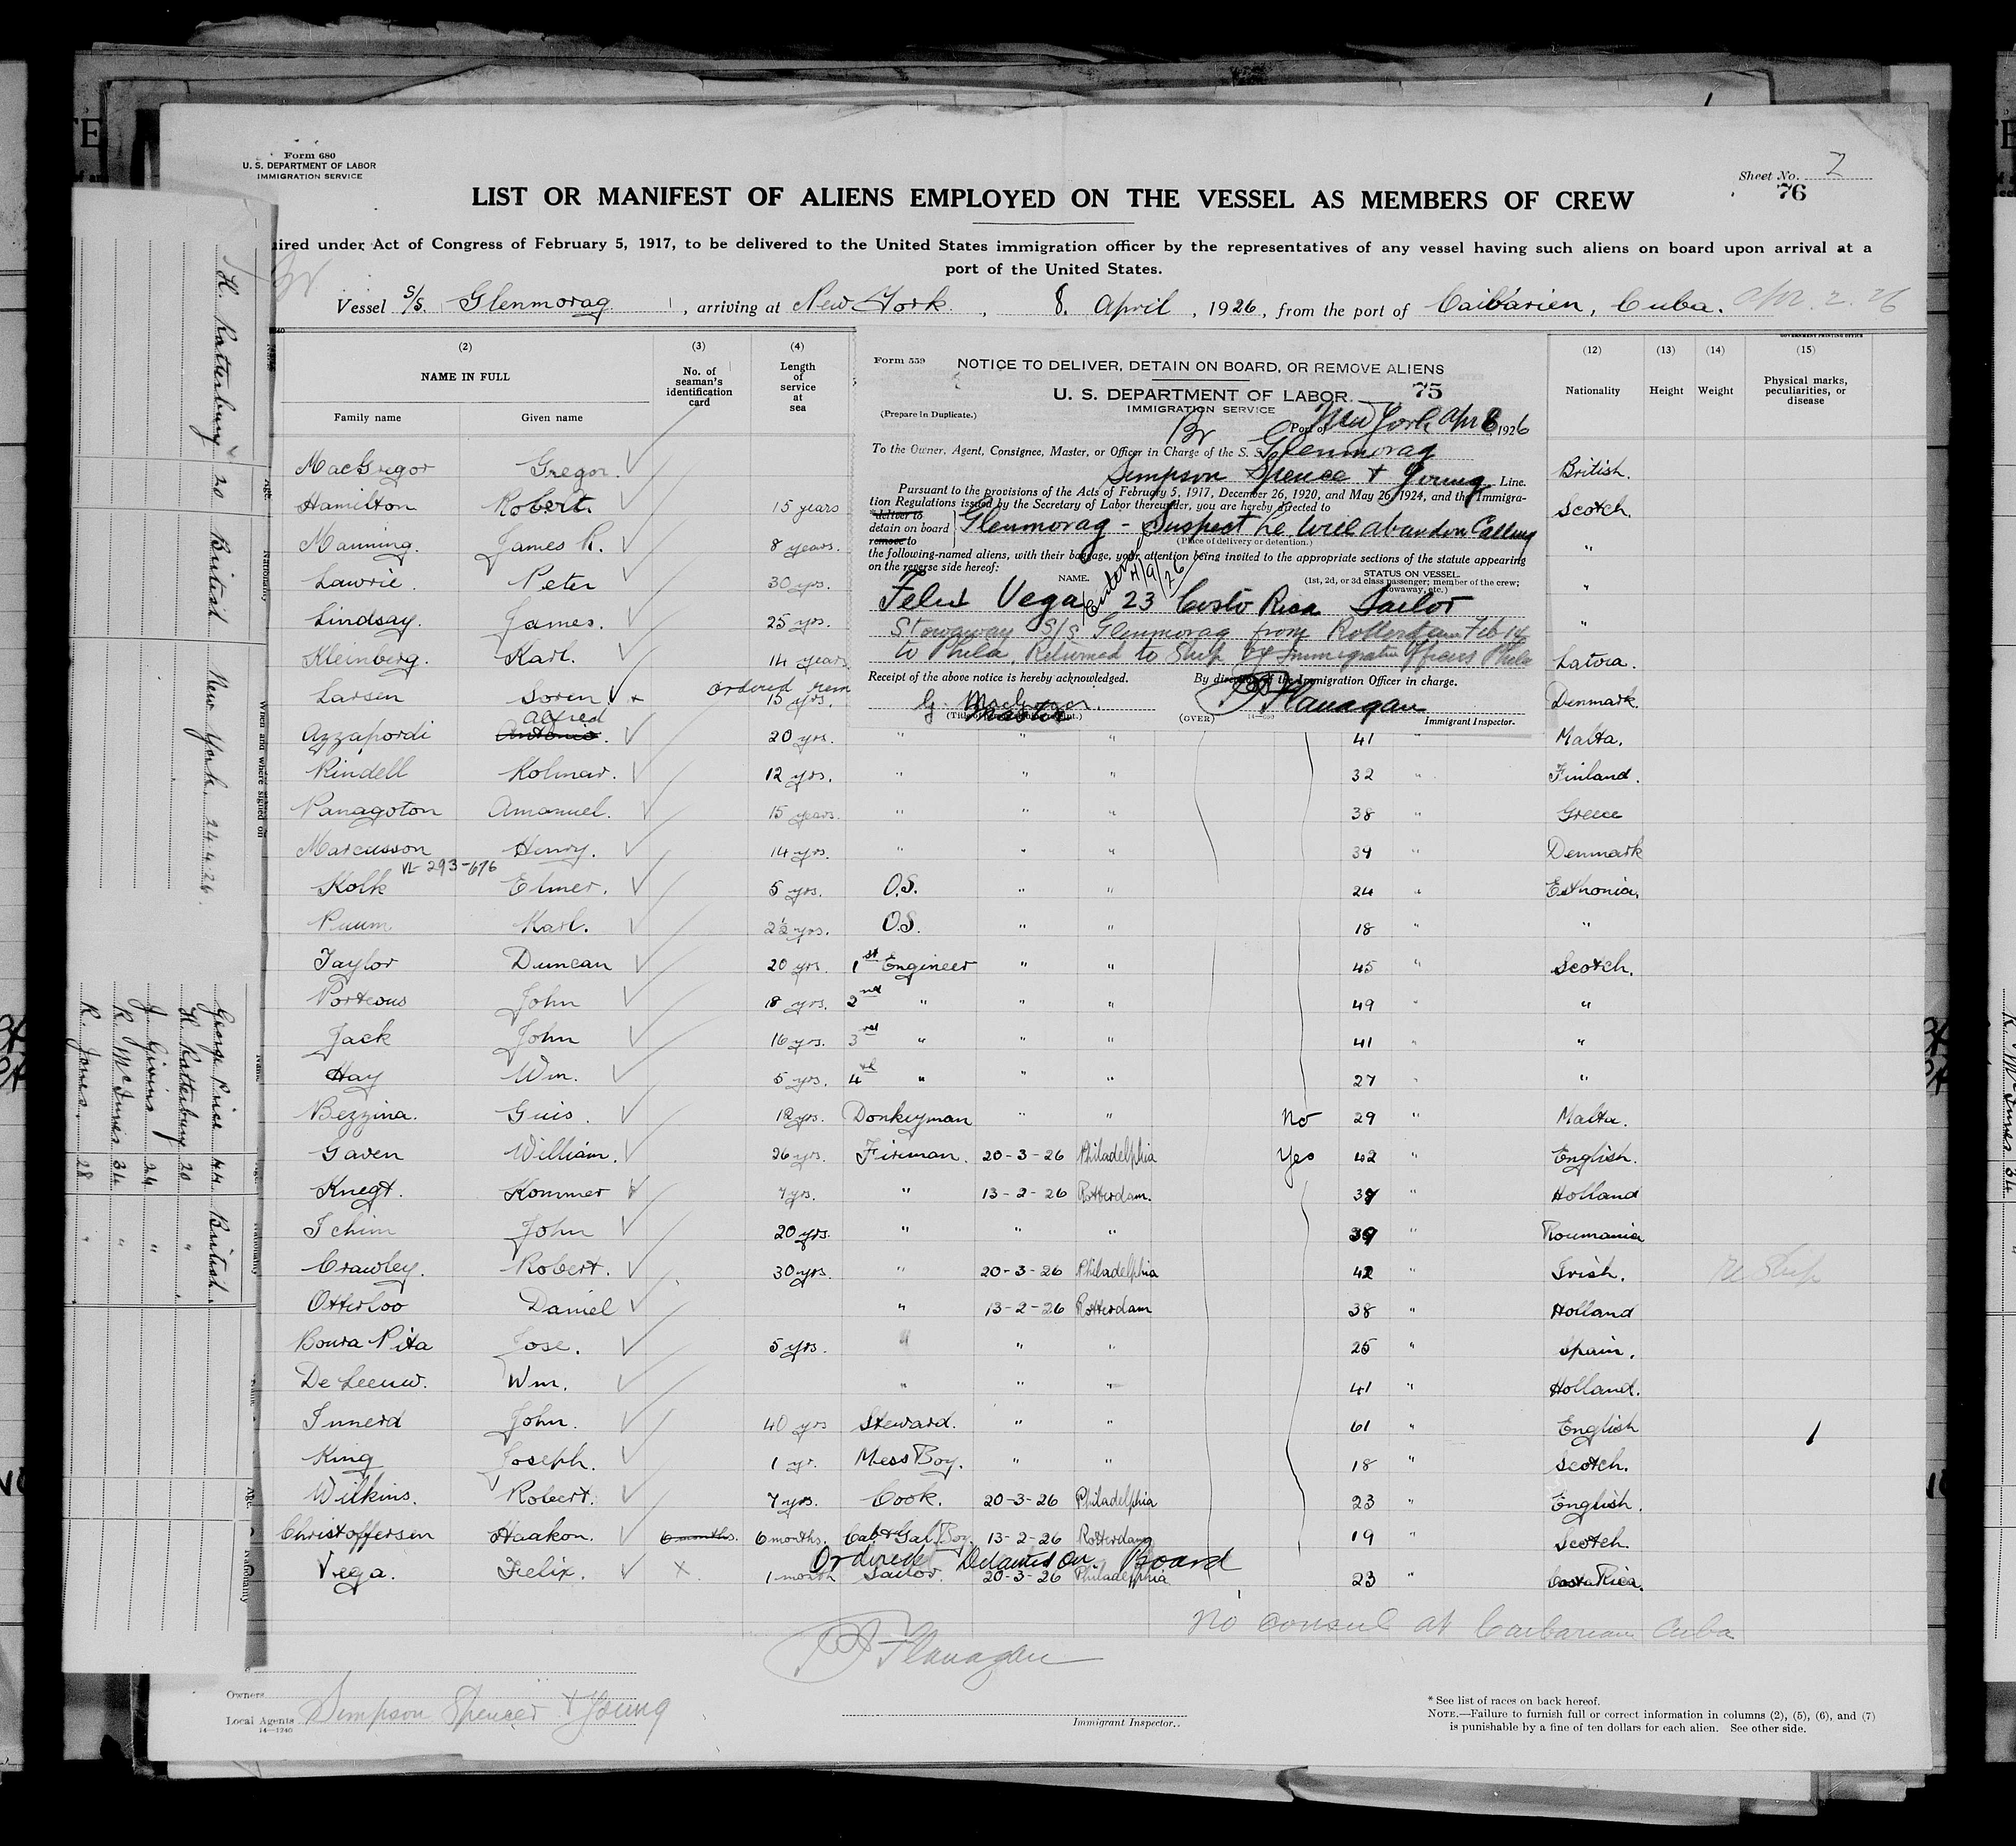 Form 680
U. S. DEPARTMENT OF LABOR
IMMIGRATION SERVICE
Sheet No. 2
76
LIST OR MANIFEST OF ALIENS EMPLOYED ON THE VESSEL AS MEMBERS OF CREW
ired under Act of Congress of February 5, 1917, to be delivered to the United States immigration officer by the representatives of any vessel having such aliens on board upon arrival at a
port of the United States.
Vessel S/S. Glenmorag, arriving at New York, 8. April, 1926, from the port of Caibarien, Cuba. Apr 2. 26
(2) (3) (4) (12) (13) (14) (15)
NAME IN FULL No. of seaman's identification card Length of service at sea Nationality Height Weight Physical marks, peculiarities, or disease
Family name Given name
Form 559
NOTICE TO DELIVER, DETAIN ON BOARD, OR REMOVE ALIENS
U. S. DEPARTMENT OF LABOR 75
IMMIGRATION SERVICE
(Prepare in Duplicate.)
Br Port of New York Apr 8, 1926
To the Owner, Agent, Consignee, Master, or Officer in Charge of the S. S. Glenmorag
Simpson Spence & Young Line.
Pursuant to the provisions of the Acts of February 5, 1917, December 26, 1920, and May 26, 1924, and the Immigra-
tion Regulations issued by the Secretary of Labor thereunder, you are hereby directed to
*deliver to
detain on board Glenmorag - Suspect he will abandon Calling
remove to (Place of delivery or detention.)
the following-named aliens, with their baggage, your attention being invited to the appropriate sections of the statute appearing
on the reverse side hereof:
NAME. STATUS ON VESSEL.
(1st, 2d, or 3d class passenger; member of the crew; stowaway, etc.)
4/9/26
Felix Vega 23 Costo Rica Sailor
Stowaway S/S Glenmorag from Rotterdam Feb 14
to Phila. Returned to Ship by Immigration Officers Phila
Receipt of the above notice is hereby acknowledged. By direction of the Immigration Officer in charge.
Master Flanagan
(OVER) 14-593 Immigrant Inspector.
MacGregor Gregor. British.
Hamilton Robert. 15 years Scotch.
Manning. James R. 8 years. "
Lawrie Peter 30 yrs. "
Lindsay. James. 25 yrs. "
Kleinberg. Karl. 14 years Latvia.
ordered rem
Larsen Soren 15 yrs. Denmark.
Alfred
Azzapordi Antonio. 20 yrs. " " " 41 " Malta.
Rindell Kolmar. 12 yrs. " " " 32 " Finland.
Panagoton Amanuel. 15 years. " " " 38 " Greece
Marcusson Henry. 14 yrs. " " " 39 " Denmark
VL 293-676
Kolk Elmer. 5 yrs. O.S. " " 24 " Esthonia.
Puum Karl. 2½ yrs. O.S. " " 18 " "
Taylor Duncan 20 yrs. 1st Engineer " " 45 " Scotch.
Porteous John 18 yrs. 2nd " " " 49 " "
Jack John 16 yrs. 3rd " " " 41 " "
Hay Wm. 5 yrs. 4th " " " 27 " "
Bezzina. Guis. 12 yrs. Donkeyman " " No 29 " Malta.
Gaven William. 26 yrs. Fireman. 20-3-26 Philadelphia Yes 42 " English.
Knegt. Kommer 7 yrs. " 13-2-26 Rotterdam. 37 " Holland
Ichim John 20 yrs. " " " 39 " Roumania
Crawley. Robert. 30 yrs. " 20-3-26 Philadelphia 42 " Irish. Re Ship
Otterloo Daniel " 13-2-26 Rotterdam 38 " Holland
Boura Pita Jose. 5 yrs. " " " 25 " Spain.
De Leeuw. Wm. " " " 41 " Holland.
Innerd John. 40 yrs Steward. " " 61 " English
King Joseph. 1 yr. Mess Boy. " " 18 " Scotch.
Wilkins. Robert. 7 yrs. Cook. 20-3-26 Philadelphia 23 " English.
Christoffersen Haakon. 6 months. 6 months. Cab & Gal. Boy 13-2-26 Rotterdam 19 " Scotch.
Ordered Detained On Board
Vega. Felix. X 1 month Sailor 20-3-26 Philadelphia 23 " Costa Rica.
No consul at Caibarien Cuba
Flanagan
Owners
Local Agents Simpson Spencer & Young
14-1240
Immigrant Inspector.
* See list of races on back hereof.
NOTE.—Failure to furnish full or correct information in columns (2), (5), (6), and (7)
is punishable by a fine of ten dollars for each alien. See other side.
Name Age Nationality When and where signed on
H. Rattenbury 20 British New York. 24.4.26.
Name Age Nationality
George Price 44 British.
H. Rattenbury 20 "
J. Givins 24 "
R. McInnes 34 "
R. Jones. 28 "